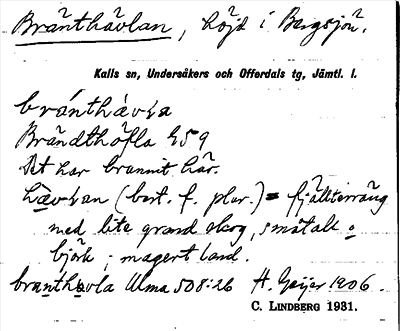 Bränthävlan, höjd i Bergsjön.
Kalls sn, Undersåkers och Offerdals tg, Jämtl. l.
bránthàvļa
Brändthöfla Gs 9
Det har brunnit här.
hävļan (best. f. plur.) = fjällterräng
med lite grand skog, småtall o
björk; magert land.
branthavla Ulma 508:26 H. Geijer 1906.
C. LINDBERG 1931.